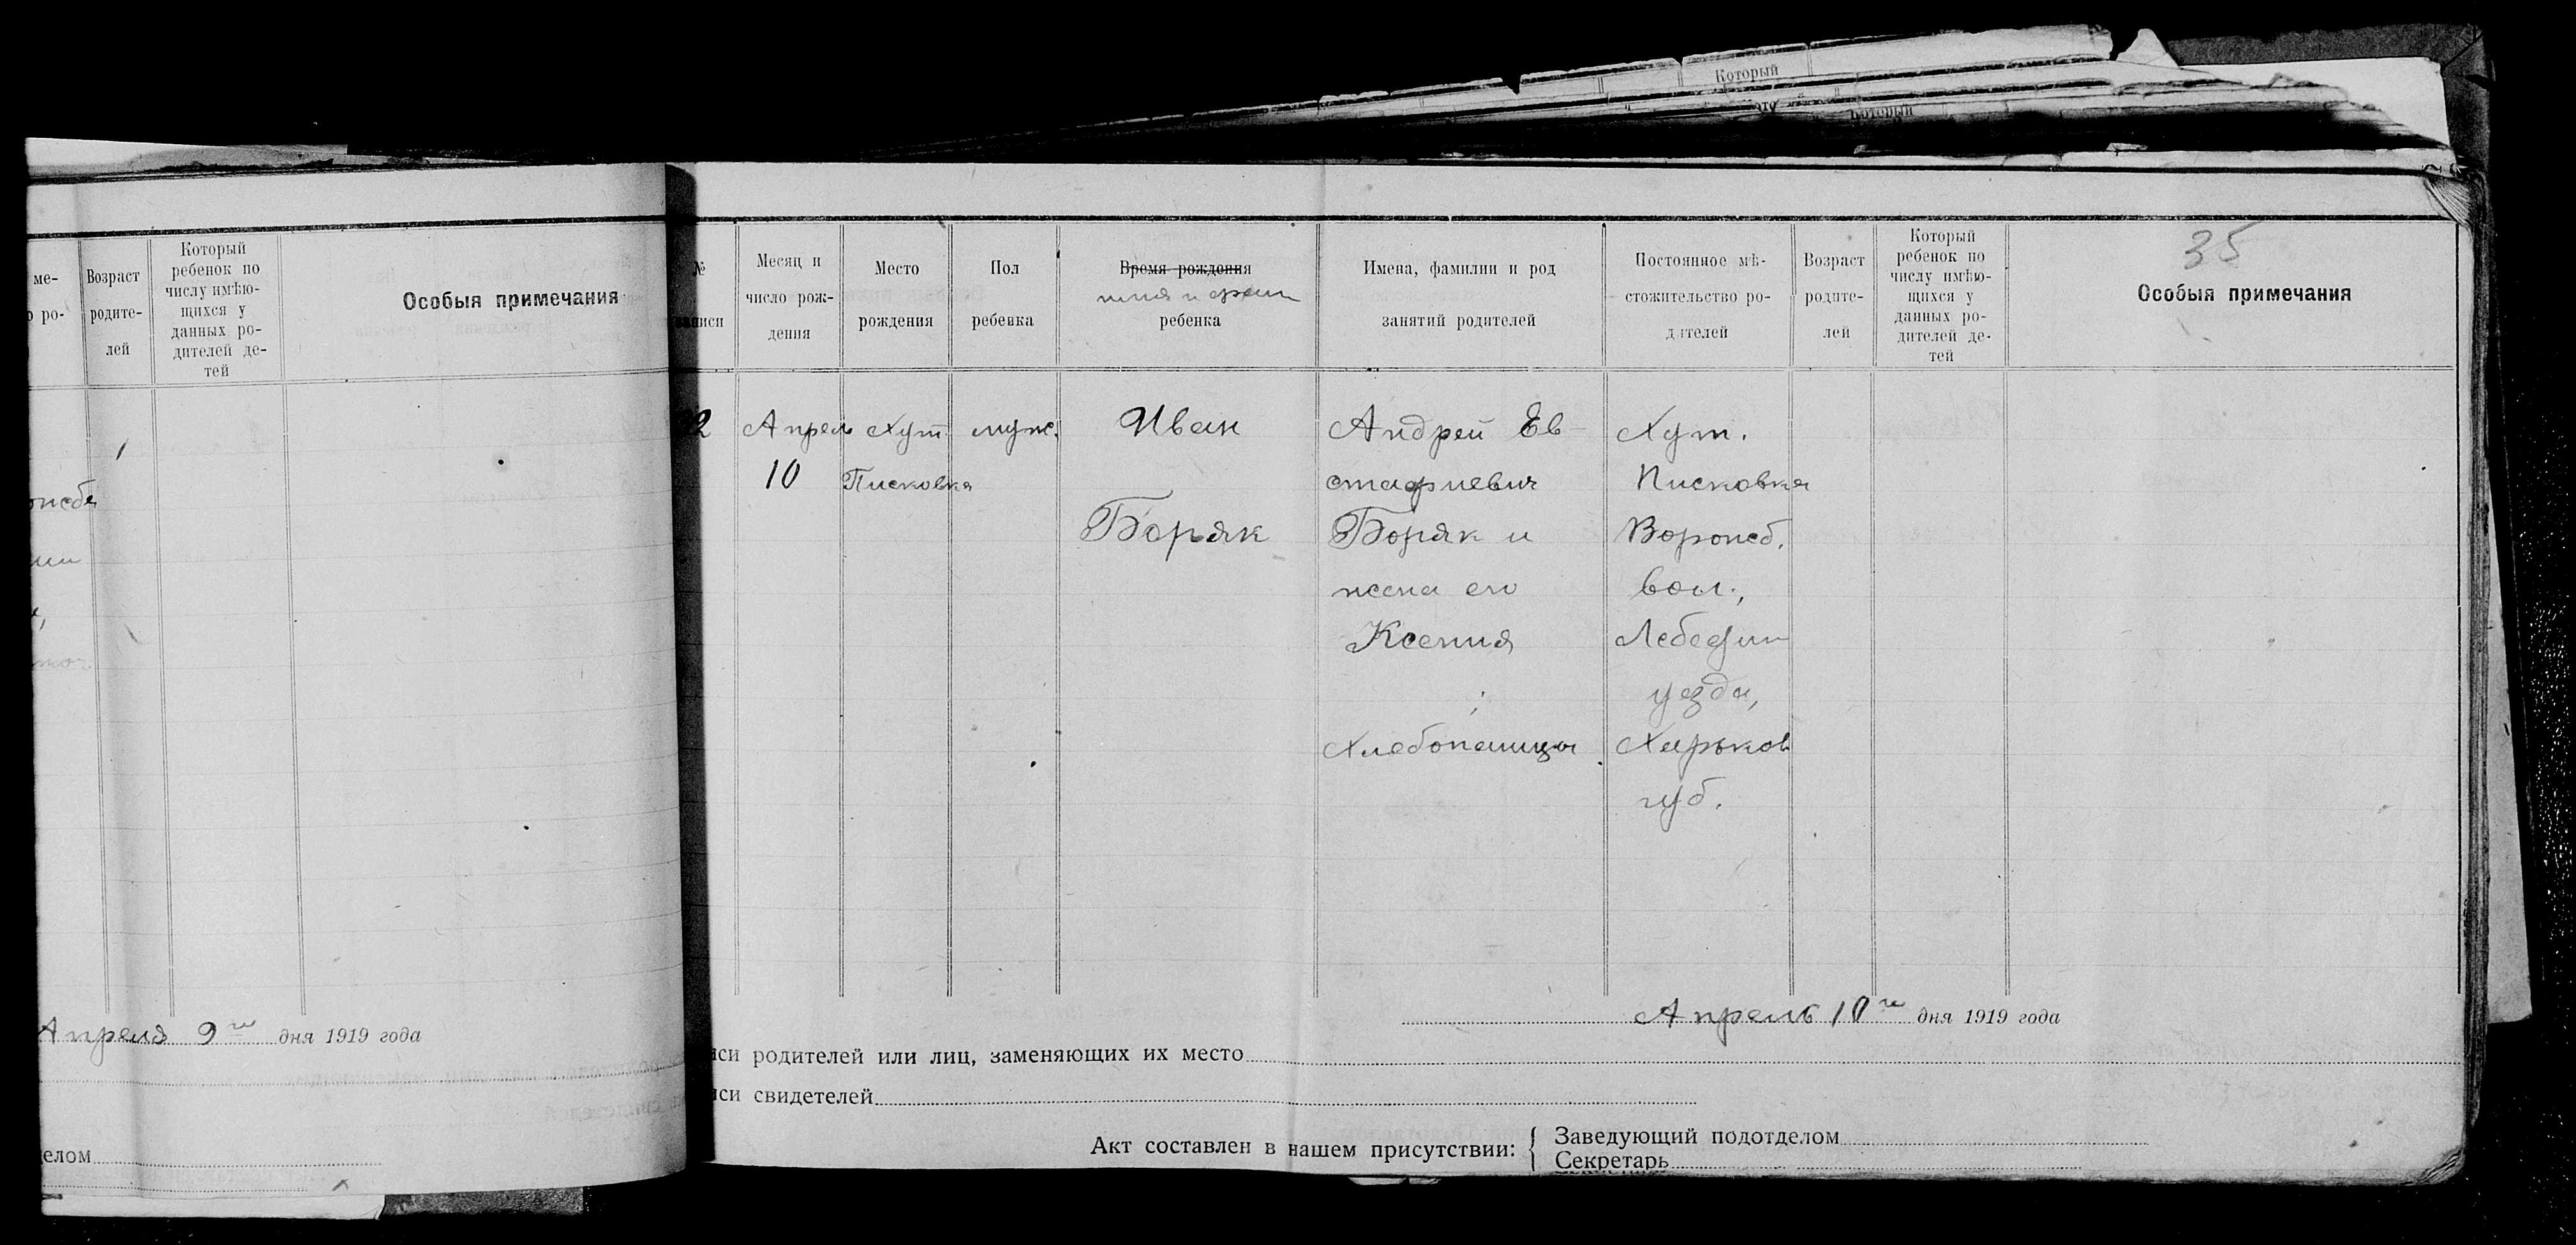 Который
Который
ме-
о ро-
Возраст
родите-
лей
Который
ребенок по
числу имѣю-
щихся у
данных ро-
дителей де-
тей
Особыя примечания
Апреля 9го дня 1919 года
елом
35
№
записи
Месяц и
число рож-
дения
Место
рождения
Пол
ребенка
Время рождения
имя и фам
ребенка
Имена, фамилии и род
занятий родителей
Постоянное мѣ-
стожительство ро-
дителей
Возраст
родите-
лей
Который
ребенок по
числу имѣю-
щихся у
данных ро-
дителей де-
тей
Особыя примечания
Апрель
10
Хут.
Писковка
муж.
Иван
Боряк
Андрей Ев-
стафиевич
Боряк и
жена его
Ксения
Хлебопашцы
Хут.
Писковка
Ворожб.
вол.,
Лебедин
уезда,
Харьков
губ.
Апрель 10го дня 1919 года
иси родителей или лиц, заменяющих их место
иси свидетелей
Акт составлен в нашем присутствии:
Заведующий подотделом
Секретарь